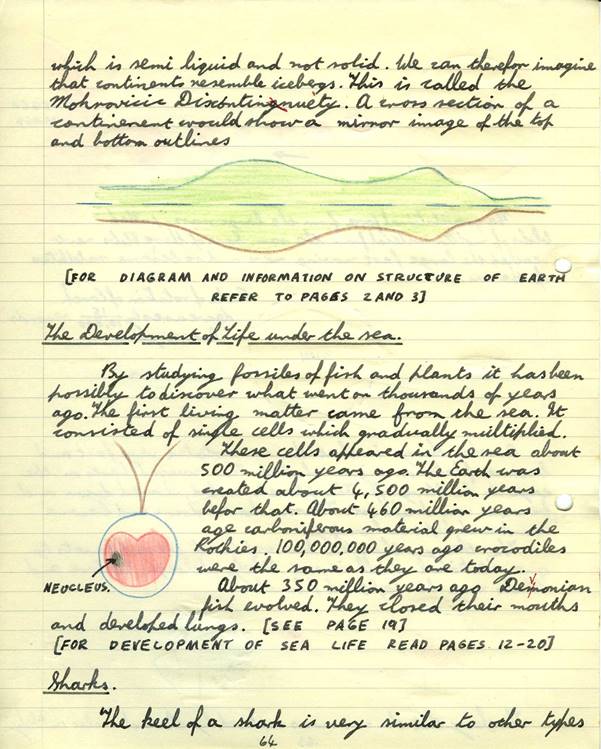 which is semi liquid and not solid. We can therefor imagine
that continents resemble icebergs. This is called the
Mohrovicic Discontinuety. A cross section of a
continenent would show a mirror image of the top
and bottom outlines
[FOR DIAGRAM AND INFORMATION ON STRUCTURE OF EARTH
REFER TO PAGES 2 AND 3]
The Development of Life under the sea.
By studying fossiles of fish and plants it has been
possibly to discover what went on thousands of years
ago. The first living matter came from the sea. It
consisted of single cells which gradually multiplied.
These cells appeared in the sea about
500 million years ago. The Earth was
created about 4,500 million years
befor that. About 460 million years
age carboniferous material grew in the
Rockies. 100,000,000 years ago crocodiles
were the same as they are today.
NEUCLEUS.
About 350 million years ago Devonian
fish evolved. They closed their mouths
and developed lungs. [SEE PAGE 19]
[FOR DEVELOPMENT OF SEA LIFE READ PAGES 12-20]
Sharks.
The keel of a shark is very similar to other types
64